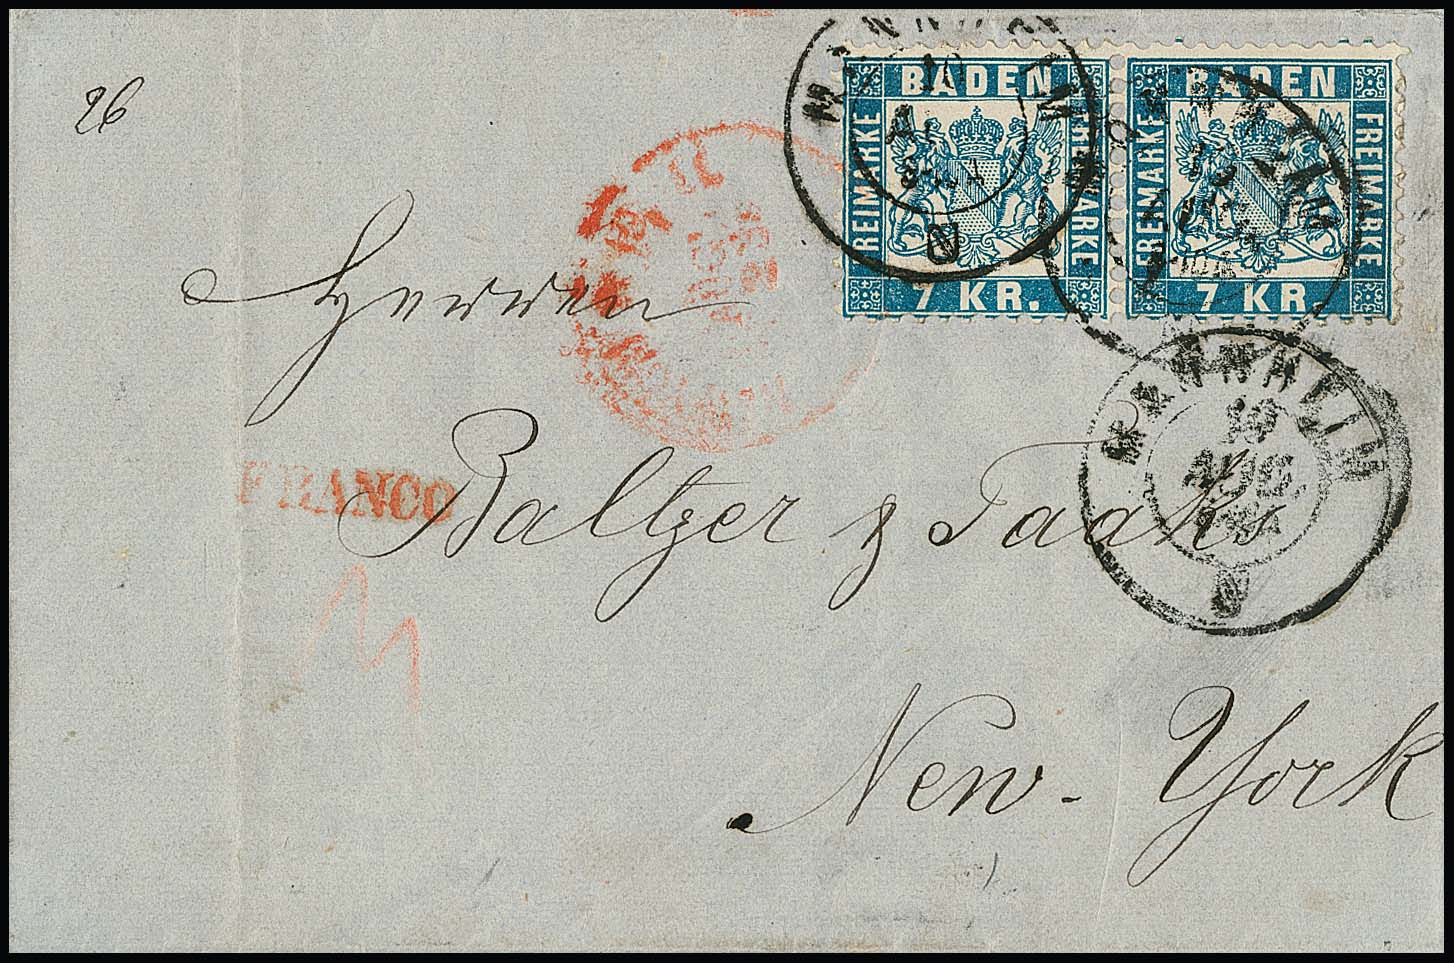 26
BADEN BADEN
FREIMARKE FREIMARKE FREIMARKE FREIMARKE
7 KR. 7 KR.
MANNHEIM
10
MANNHEIM
10
AUG.
Herren
FRANCO
Baltzer & Taaks
New-York